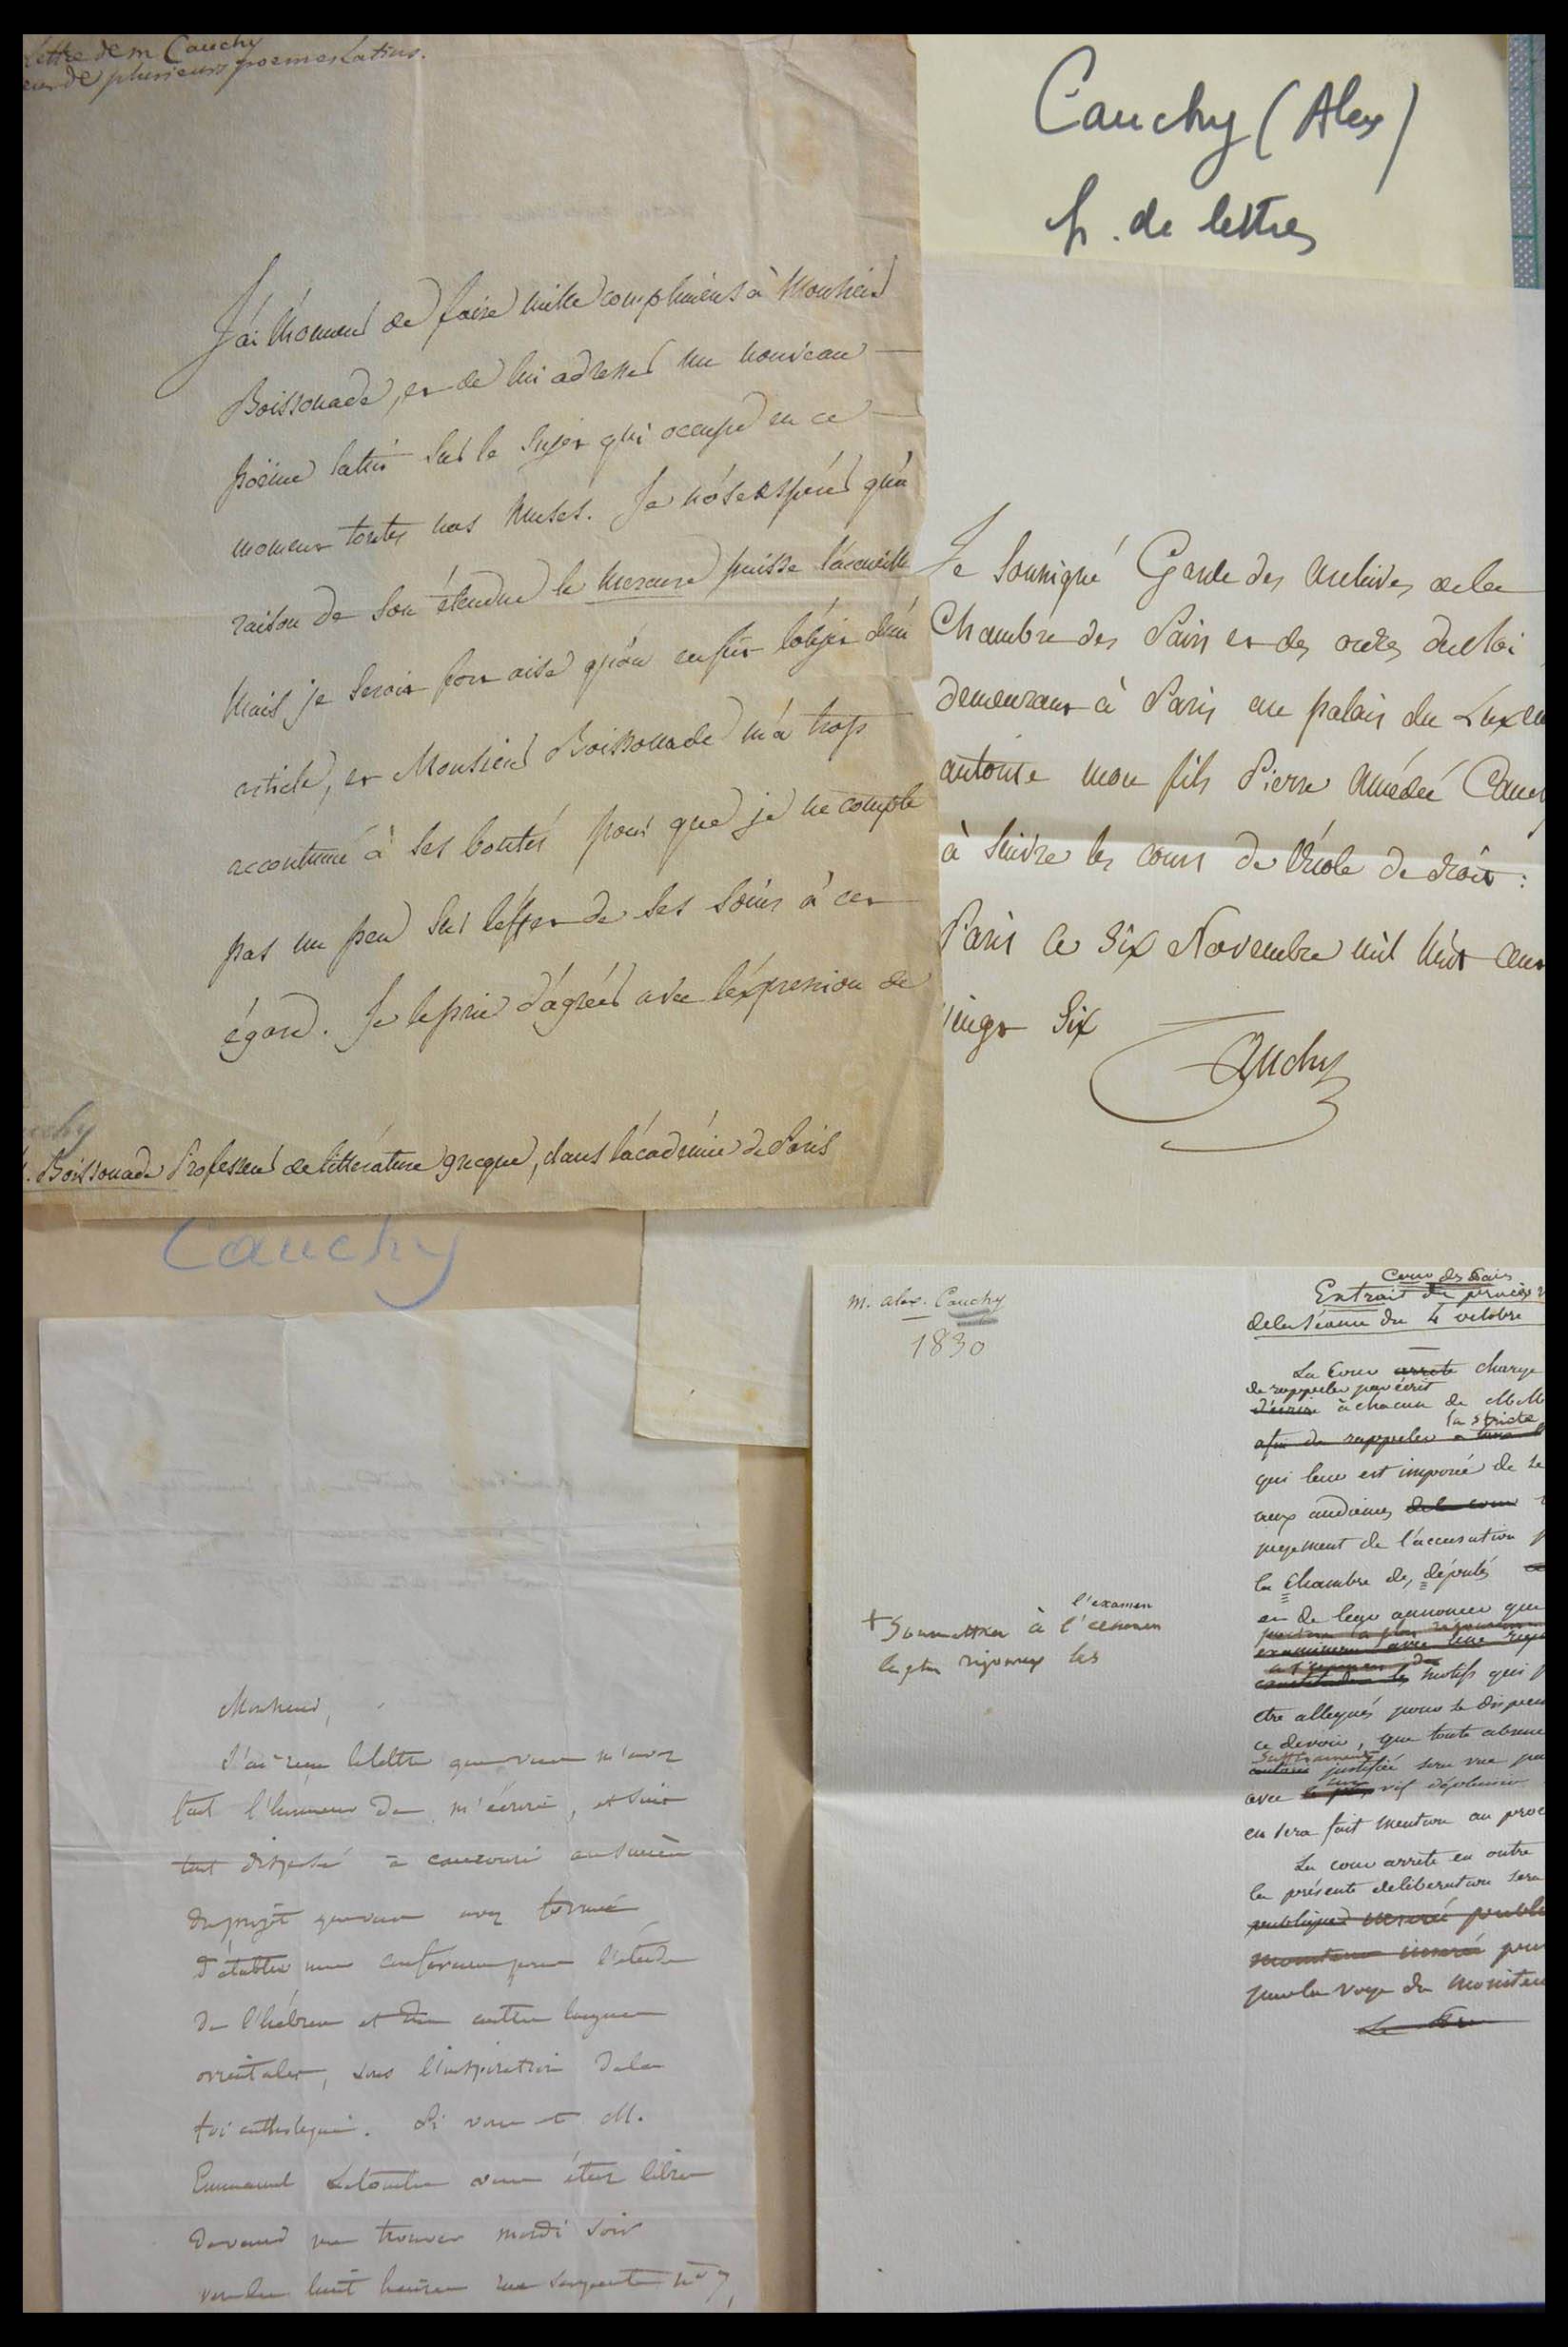 Lettre de m Cauchy
eur de plusieurs poemes Latins.
J'ai l'honneur de faire mille complimens à Monsieur
Boissonade, et de lui adresser un nouveau
poëme latin sur le sujet qui occupe en ce
moment toutes nos Muses. Je n'ose espérer qu'à
raison de son étendue le Mercure puisse l'accueillir
Mais je serois fort aise qu'on en fit l'objet d'un
article, et Monsieur Boissonade m'a trop
accoutumé à ses bontés pour que je ne compte
pas un peu sur l'effet de ses soins à cet
égard. Je le prie d'agréer avec l'expression de
Boissonade Professeur de littérature grecque, dans l'académie de Paris
Cauchy
Cauchy (Alex)
p. de lettres
Je soussigné Garde des Archives de la
Chambre des Pairs et des sceaux du Roi
demeurant à Paris au palais du Luxem
autorise mon fils Pierre Amédée Cauch
à suivre les cours de l'école de droit :
Paris ce six Novembre mil huit cent
vingt six
Cauchy
Monsieur,
J'ai reçu la lettre que vous m'avez
fait l'honneur de m'écrire, et suis
tout disposé à concourir au succès
du projet que vous avez formé
d'établir une conférence pour l'étude
de l'hébreu et des autres langues
orientales, sous l'inspiration de la
foi catholique. Si vous et M.
Emmanuel vous étiez libres
devenez me trouver mardi soir
vers les huit heures rue serpente n° 7,
m. alex. Cauchy
1830
+ Soumettre à l'examen
l'examen
le plus rigoureux les
Cour des Pairs
Extrait du procès v
de la séance du 4 octobre
La Cour arrête charge
de rappeler par écrit
d'écrire à chacun de MM
la stricte
afin de rappeler a tous
qui leur est imposée de se
aux audiences de la cour
jugement de l'accusation p
la Chambre des députés
et de leur annoncer que
examinera avec
motifs qui p
etre allegués pour se dispen
ce devoir, que toute absence
suffisamment
justifié sera vue par
avec le plus vif déplaisir
en sera fait mention au proc
La cour arrête en outre
la présente deliberation sera
publique inseré
moniteur inseré pour
par la voye du Moniteu